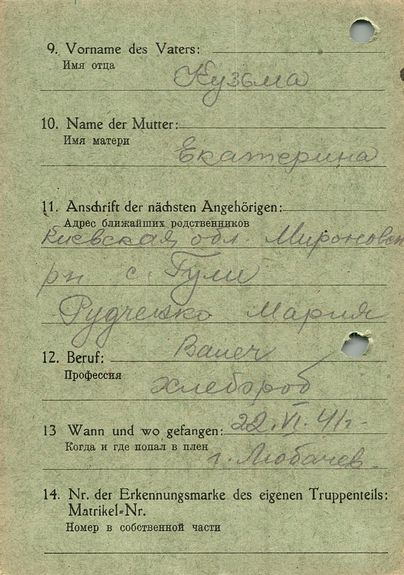 9. Vorname des Vaters:
Имя отца
Кузьма
10. Name der Mutter:
Имя матери
Екатерина
11. Anschrift der nächsten Angehörigen:
Адрес ближайших родственников
Киевская обл. Мироновск
рн с. Гули
Рудченко Мария
12. Beruf: Bauer
Профессия
Хлебороб
13 Wann und wo gefangen: 22.VI.41г.
Когда и где попал в плен
г. Любачев.
14. Nr. der Erkennungsmarke des eigenen Truppenteils:
Matrikel-Nr.
Номер в собственной части